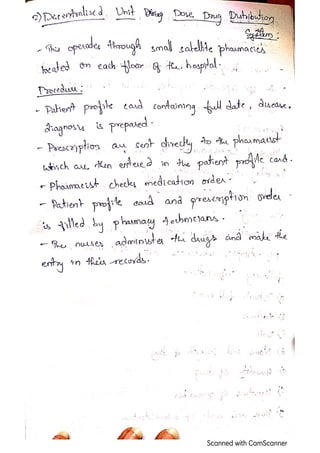 2) Decentralised Unit Dose Drug Distribution
System:
- This operates through small satellite pharmacies
located on each floor of the hospital.
Procedure:
- Patient profile card containing full date, disease,
diagnosis is prepared.
- Prescriptions are sent directly to the pharmacist
which are then entered in the patient profile card.
- Pharmacist checks medication order.
- Patient profile card and prescription order
is filled by pharmacy technicians.
- The nurses administer the drugs and make the
entry in their records.
Scanned with CamScanner